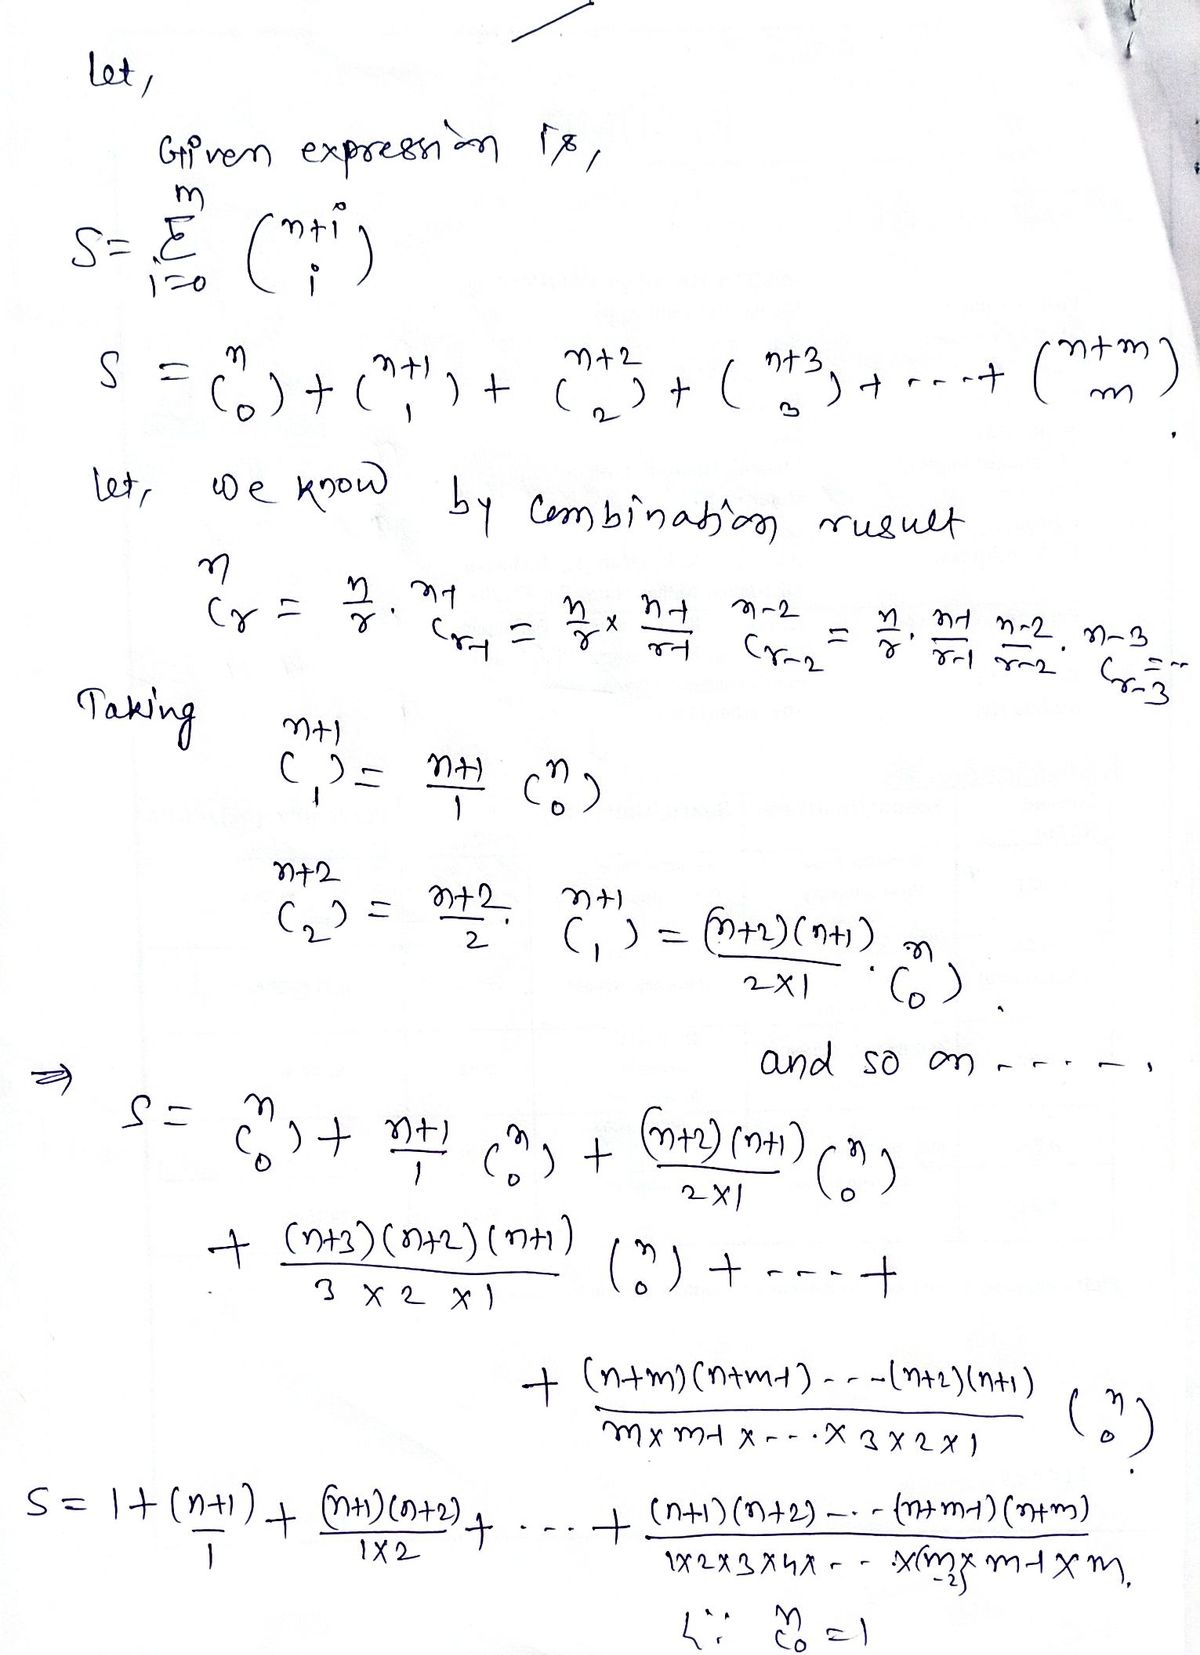 Let,
Given expression is,
S = \sum_{i=0}^{m} \binom{n+i}{i}
S = \binom{n}{0} + \binom{n+1}{1} + \binom{n+2}{2} + \binom{n+3}{3} + ---+ \binom{n+m}{m}.
let, we know by combination rusult
{}^{n}C_{r} = \frac{n}{r} . {}^{n-1}C_{r-1} = \frac{n}{r} × \frac{n-1}{r-1} {}^{n-2}C_{r-2} = \frac{n}{r} . \frac{n-1}{r-1} \frac{n-2}{r-2} . {}^{n-3}C_{r-3} = --
Taking
\binom{n+1}{1} = \frac{n+1}{1} \binom{n}{0}
\binom{n+2}{2} = \frac{n+2}{2} . \binom{n+1}{1} = \frac{(n+2)(n+1)}{2×1} . \binom{n}{0}.
and so on -----.
⇒ S = \binom{n}{0} + \frac{n+1}{1} \binom{n}{0} + \frac{(n+2)(n+1)}{2×1} \binom{n}{0}
+ \frac{(n+3)(n+2)(n+1)}{3×2×1} \binom{n}{0} + ---- +
+ \frac{(n+m)(n+m-1)---(n+2)(n+1)}{m×m-1×---.×3×2×1} \binom{n}{0}.
S = 1 + \frac{(n+1)}{1} + \frac{(n+1)(n+2)}{1×2} + --- + \frac{(n+1)(n+2)-.--(n+m-1)(n+m)}{1×2×3×4×--.×(m-2)×m-1×m.}
{∵ {}^{n}C_{0} = 1